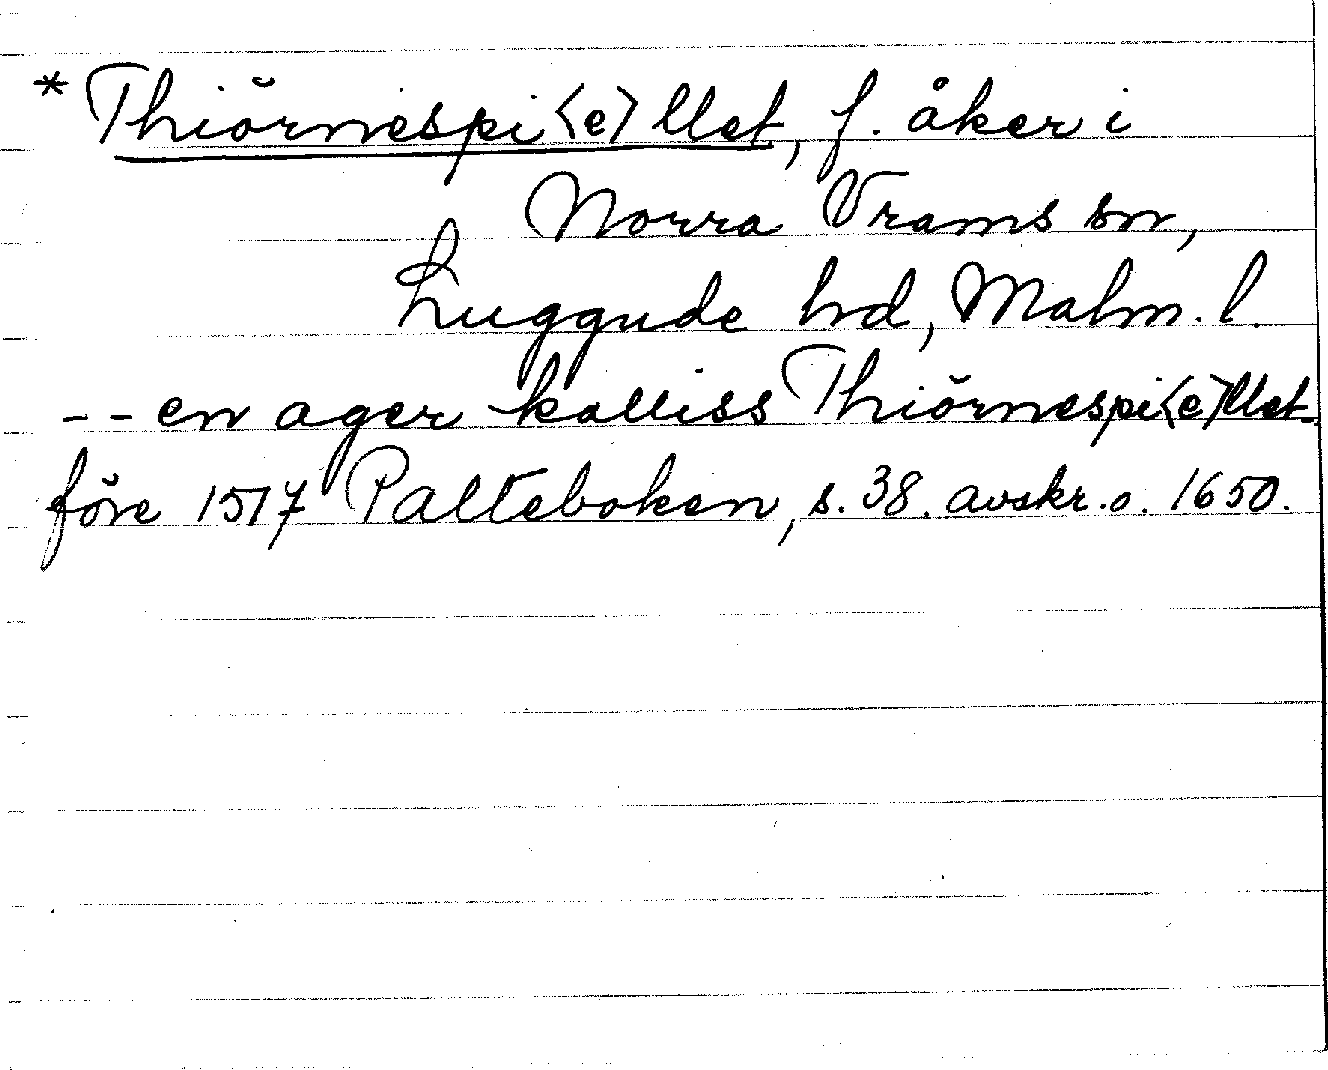 * Thiörnespi<e>llet, f. åker i
Norra Vrams sn,
Luggude hrd, Malm. l.
-- en ager kalliss Thiörnespi<e>llet
före 1517 Palteboken, s. 38. avskr. o. 1650.